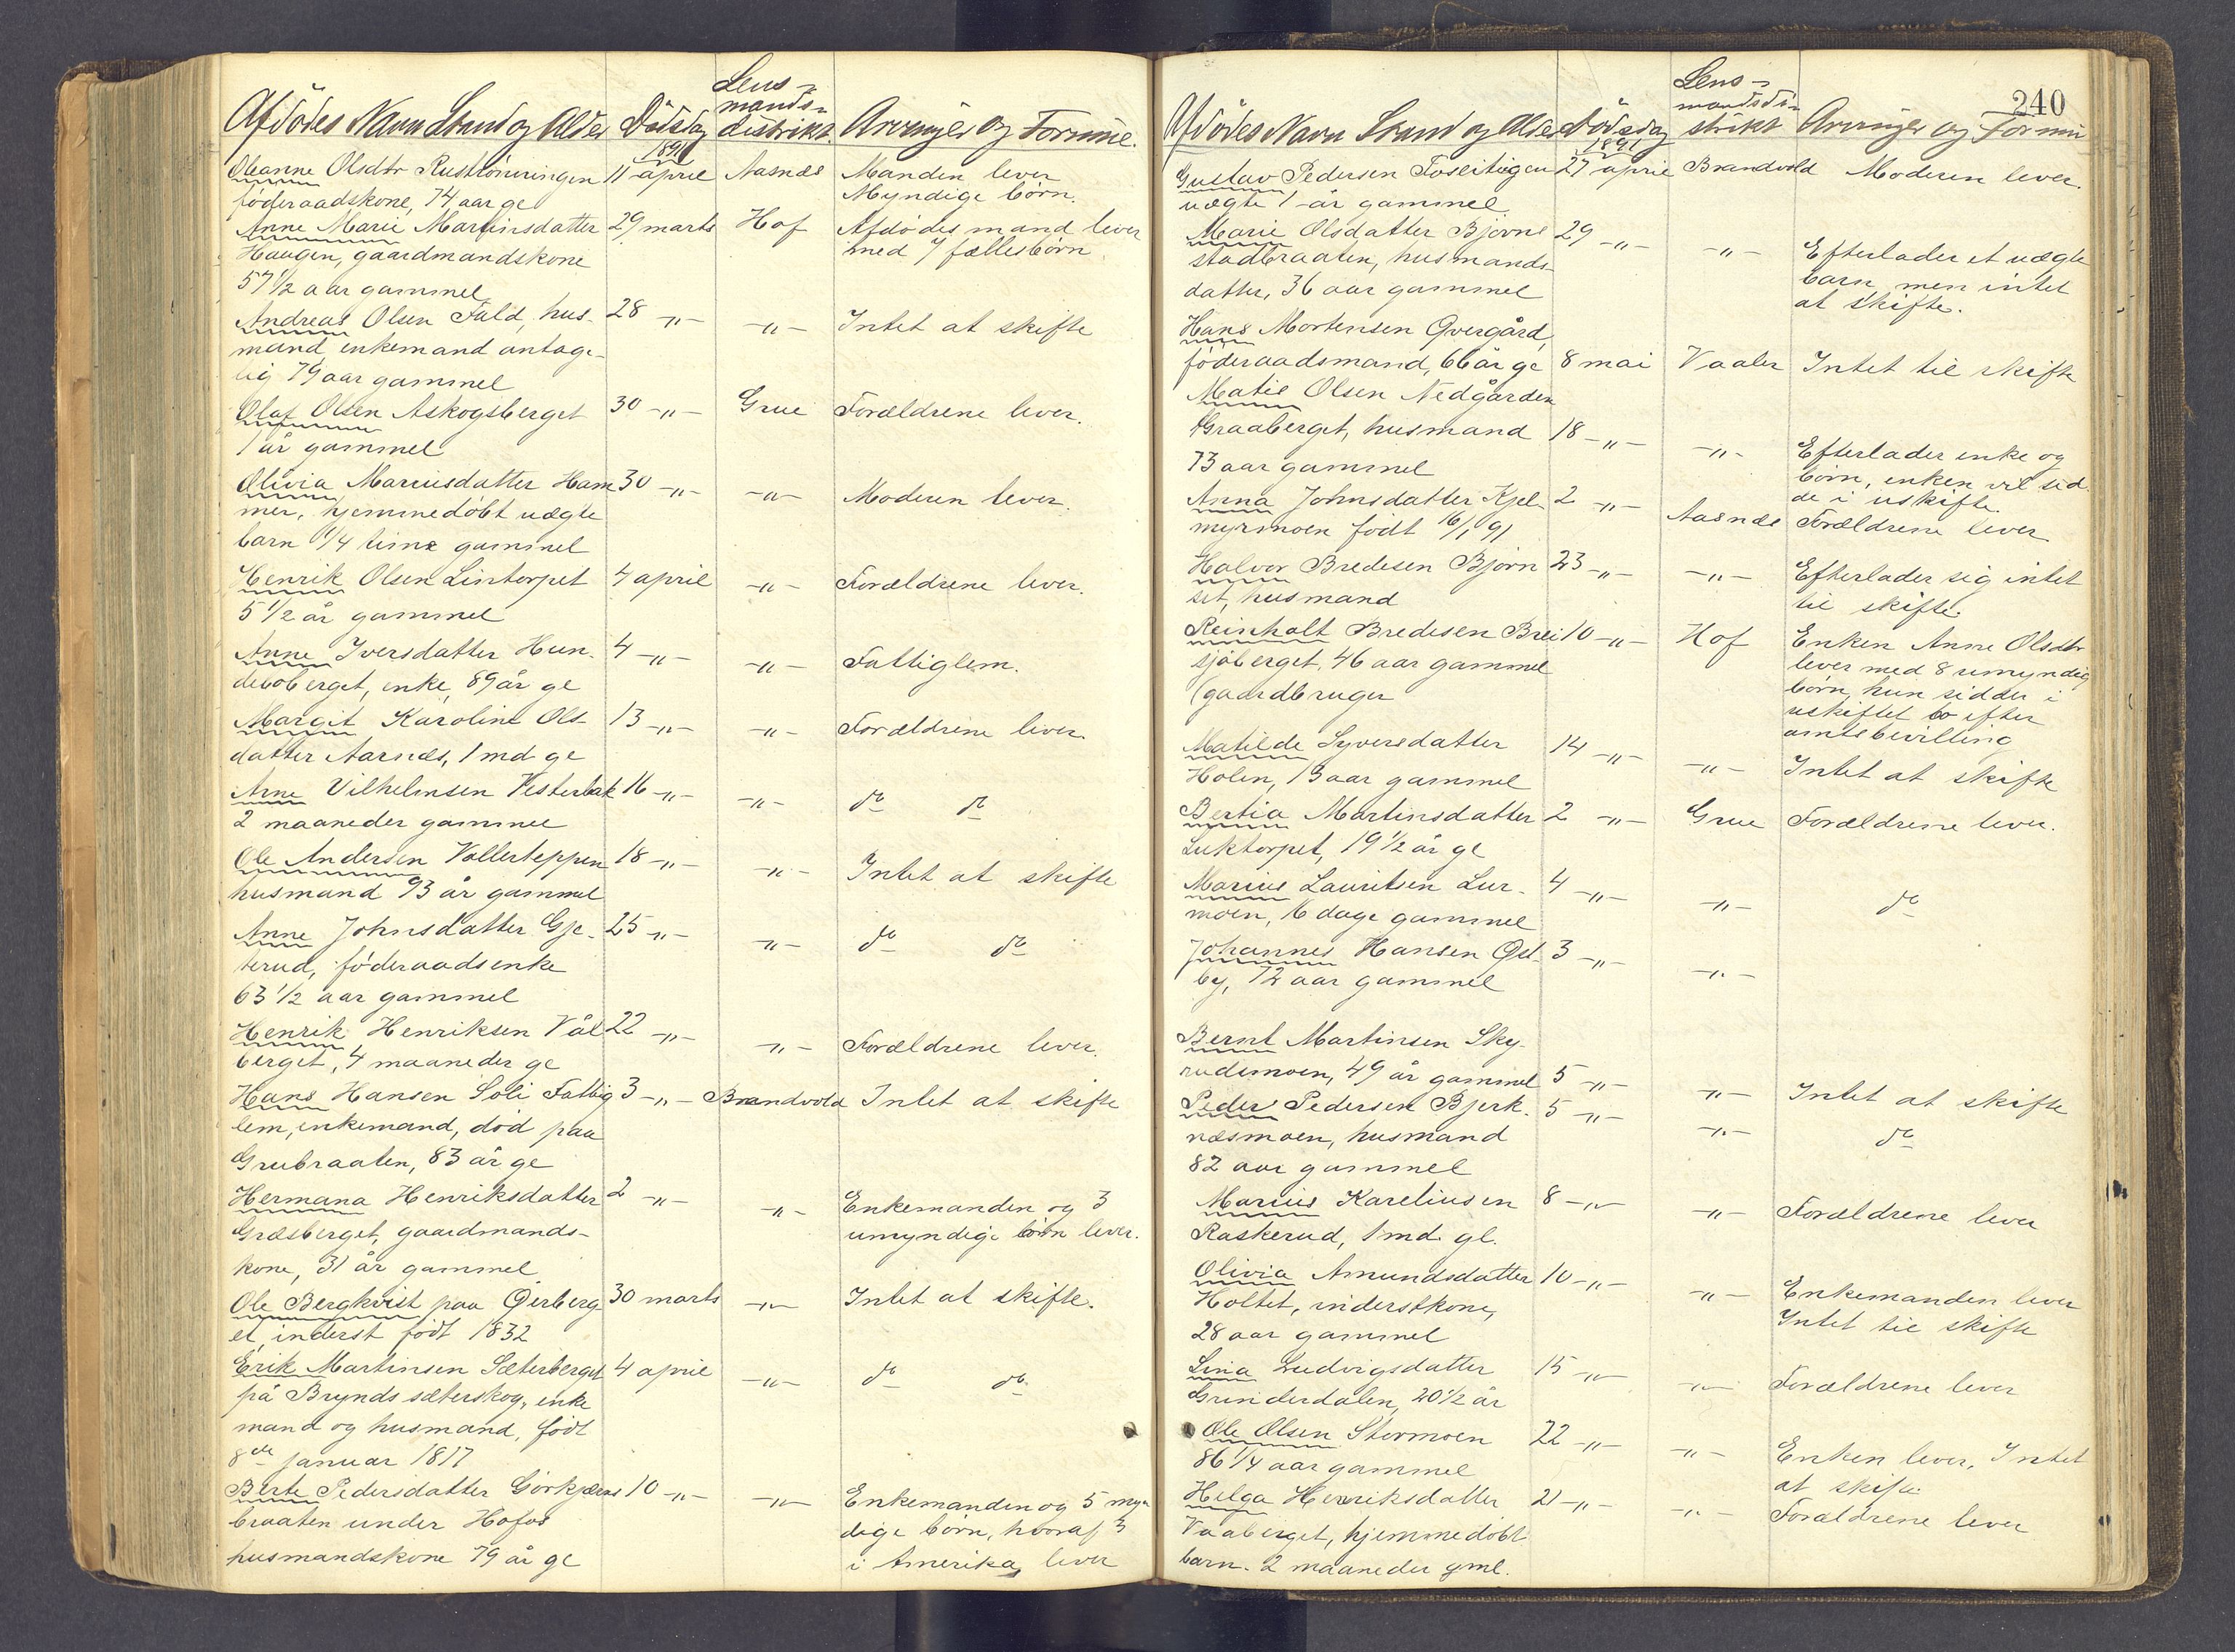 Afdödes Navn Stand og Alder Dödsdag 1891 Lensmandsdistrikt. Arvinger og Formue.
Oleanne Olsdtr Rustköiningen 11 april Aasnæs Manden lever
föderaadskone, 74 aar ge Myndige börn.
Anne Marie Martinsdatter 29 marts Hof Afdödes mand lever
Haugen, gaardmandskone med 7 fællesbörn
57 1/2 aar gammel
Andreas Olsen Fald, hus- 28 -„- -„- Intet at skifte
mand enkemand antage-
lig 79 aar gammel
Olaf Olsen Askogsberget 30 -„- Grue Forældrene lever.
1 år gammel
Olivia Mariusdatter Ham 30 -„- -„- Moderen lever.
mer, hjemmedöbt uægte
barn 1/4 time gammel
Henrik Olsen Lintorpet 4 april -„- Forældrene lever.
5 1/2 år gammel
Anne Iversdatter Hun- 4 -„- -„- Fattiglem.
deboberget, enke, 89 år ge
Margit Karoline Ols- 13 -„- -„- Forældrene lever.
datter Aarnæs, 1 md ge
Arne Vilhelmsen Vesterbak 16 -„- -„- do do
2 maaneder gammel
Ole Andersen Vollerteppen 18 -„- -„- Intet at skifte
husmand 93 år gammel
Anne Johnsdatter Gje- 25 -„- -„- do do
terud, föderaadsenke
63 1/2 aar gammel
Henrik Henriksen Vål 22 -„- -„- Forældrene lever.
berget, 4 maaneder ge
Hans Hansen Soli Fattig 3 -„- Brandvold Intet at skifte
lem, enkemand, död paa
Grubraaten, 83 år ge
Hermana Henriksdatter 2 -„- -„- Enkemanden og 3
Græsberget, gaardmands- umyndige börn lever.
kone, 31 år gammel
Ole Bergkvist paa Öierberg 30 marts -„- Intet at skifte.
et, inderst födt 1832
Erik Martinsen Sæterberget 4 april -„- do do
på Brynds sæterskog, enke
mand og husmand, födt
8de januar 1817
Berte Pedersdatter Görkjærns 10 -„- -„- Enkemanden og 5 myn
braaten under Hofos dige börn, hvoraf 3
husmandskone 79 år ge i Amerika, lever
240
Afdödes Navn Stand og Alder Dödsdag 1891 Lensmandsdistrikt Arvinger og Formu
Gustav Pedersen Foseitigen 27 april Brandvold Moderen lever.
uægte 1 år gammel
Marie Olsdatter Björne 29 -„- -„- Efterlader et uægte
stadbraaten, husmands- barn, men intet
datter, 36 aar gammel at skifte.
Hans Mortensen Övergård,
föderaadsmand, 66 år ge 8 mai Vaaler Intet til skifte
Matis Olsen Nedgården
Graaberget, husmand 18 -„- -„- Efterlader enke og
73 aar gammel börn, enken vil sid
de i uskifte.
Anna Johnsdatter Kjel- 2 -„- Aasnæs Forældrene lever
myrmoen födt 16/1 91
Halvor Bredesen Björn 23 -„- -„- Efterlader sig intet
set, husmand til skifte.
Reinholt Bredesen Brei 10 -„- Hof Enken Anne Olsdtr
sjöberget, 46 aar gammel lever med 8 umyndig
(gaardbruger börn, hun sidder i
uskiftet bo efter
amtsbevilling
Matilde Syversdatter 14 -„- -„- Intet at skifte
Holen, 13 aar gammel
Bertia Martinsdatter 2 -„- Grue Forældrene lever.
Luktorpet, 19 1/2 år ge
Marius Lauritsen Lur- 4 -„- -„- do
moen, 16 dage gammel
Johannes Hansen Öst- 3 -„- -„-
by, 72 aar gammel
Bernt Martinsen Sky-
rudsmoen, 49 år gammel 5 -„- -„- Intet at skifte
Peder Pedersen Bjerk- 5 -„- -„- do
næsmoen, husmand
82 aar gammel
Marius Kareliusen 8 -„- -„- Forældrene lever
Raskerud, 1 md. gl.
Olivia Amundsdatter 10 -„- -„- Enkemanden lever
Holtet, inderstkone, Intet til skifte
28 aar gammel
Lina Ludvigsdatter 15 -„- -„- Forældrene lever
Grinderdalen, 20 1/2 år
Ole Olsen Stormoen 22 -„- -„- Enken lever. Intet
86 1/4 aar gammel at skifte
Helga Henriksdatter 21 -„- -„- Forældrene lever
Vaaberget, hjemmedöbt
barn. 2 maaneder gml.